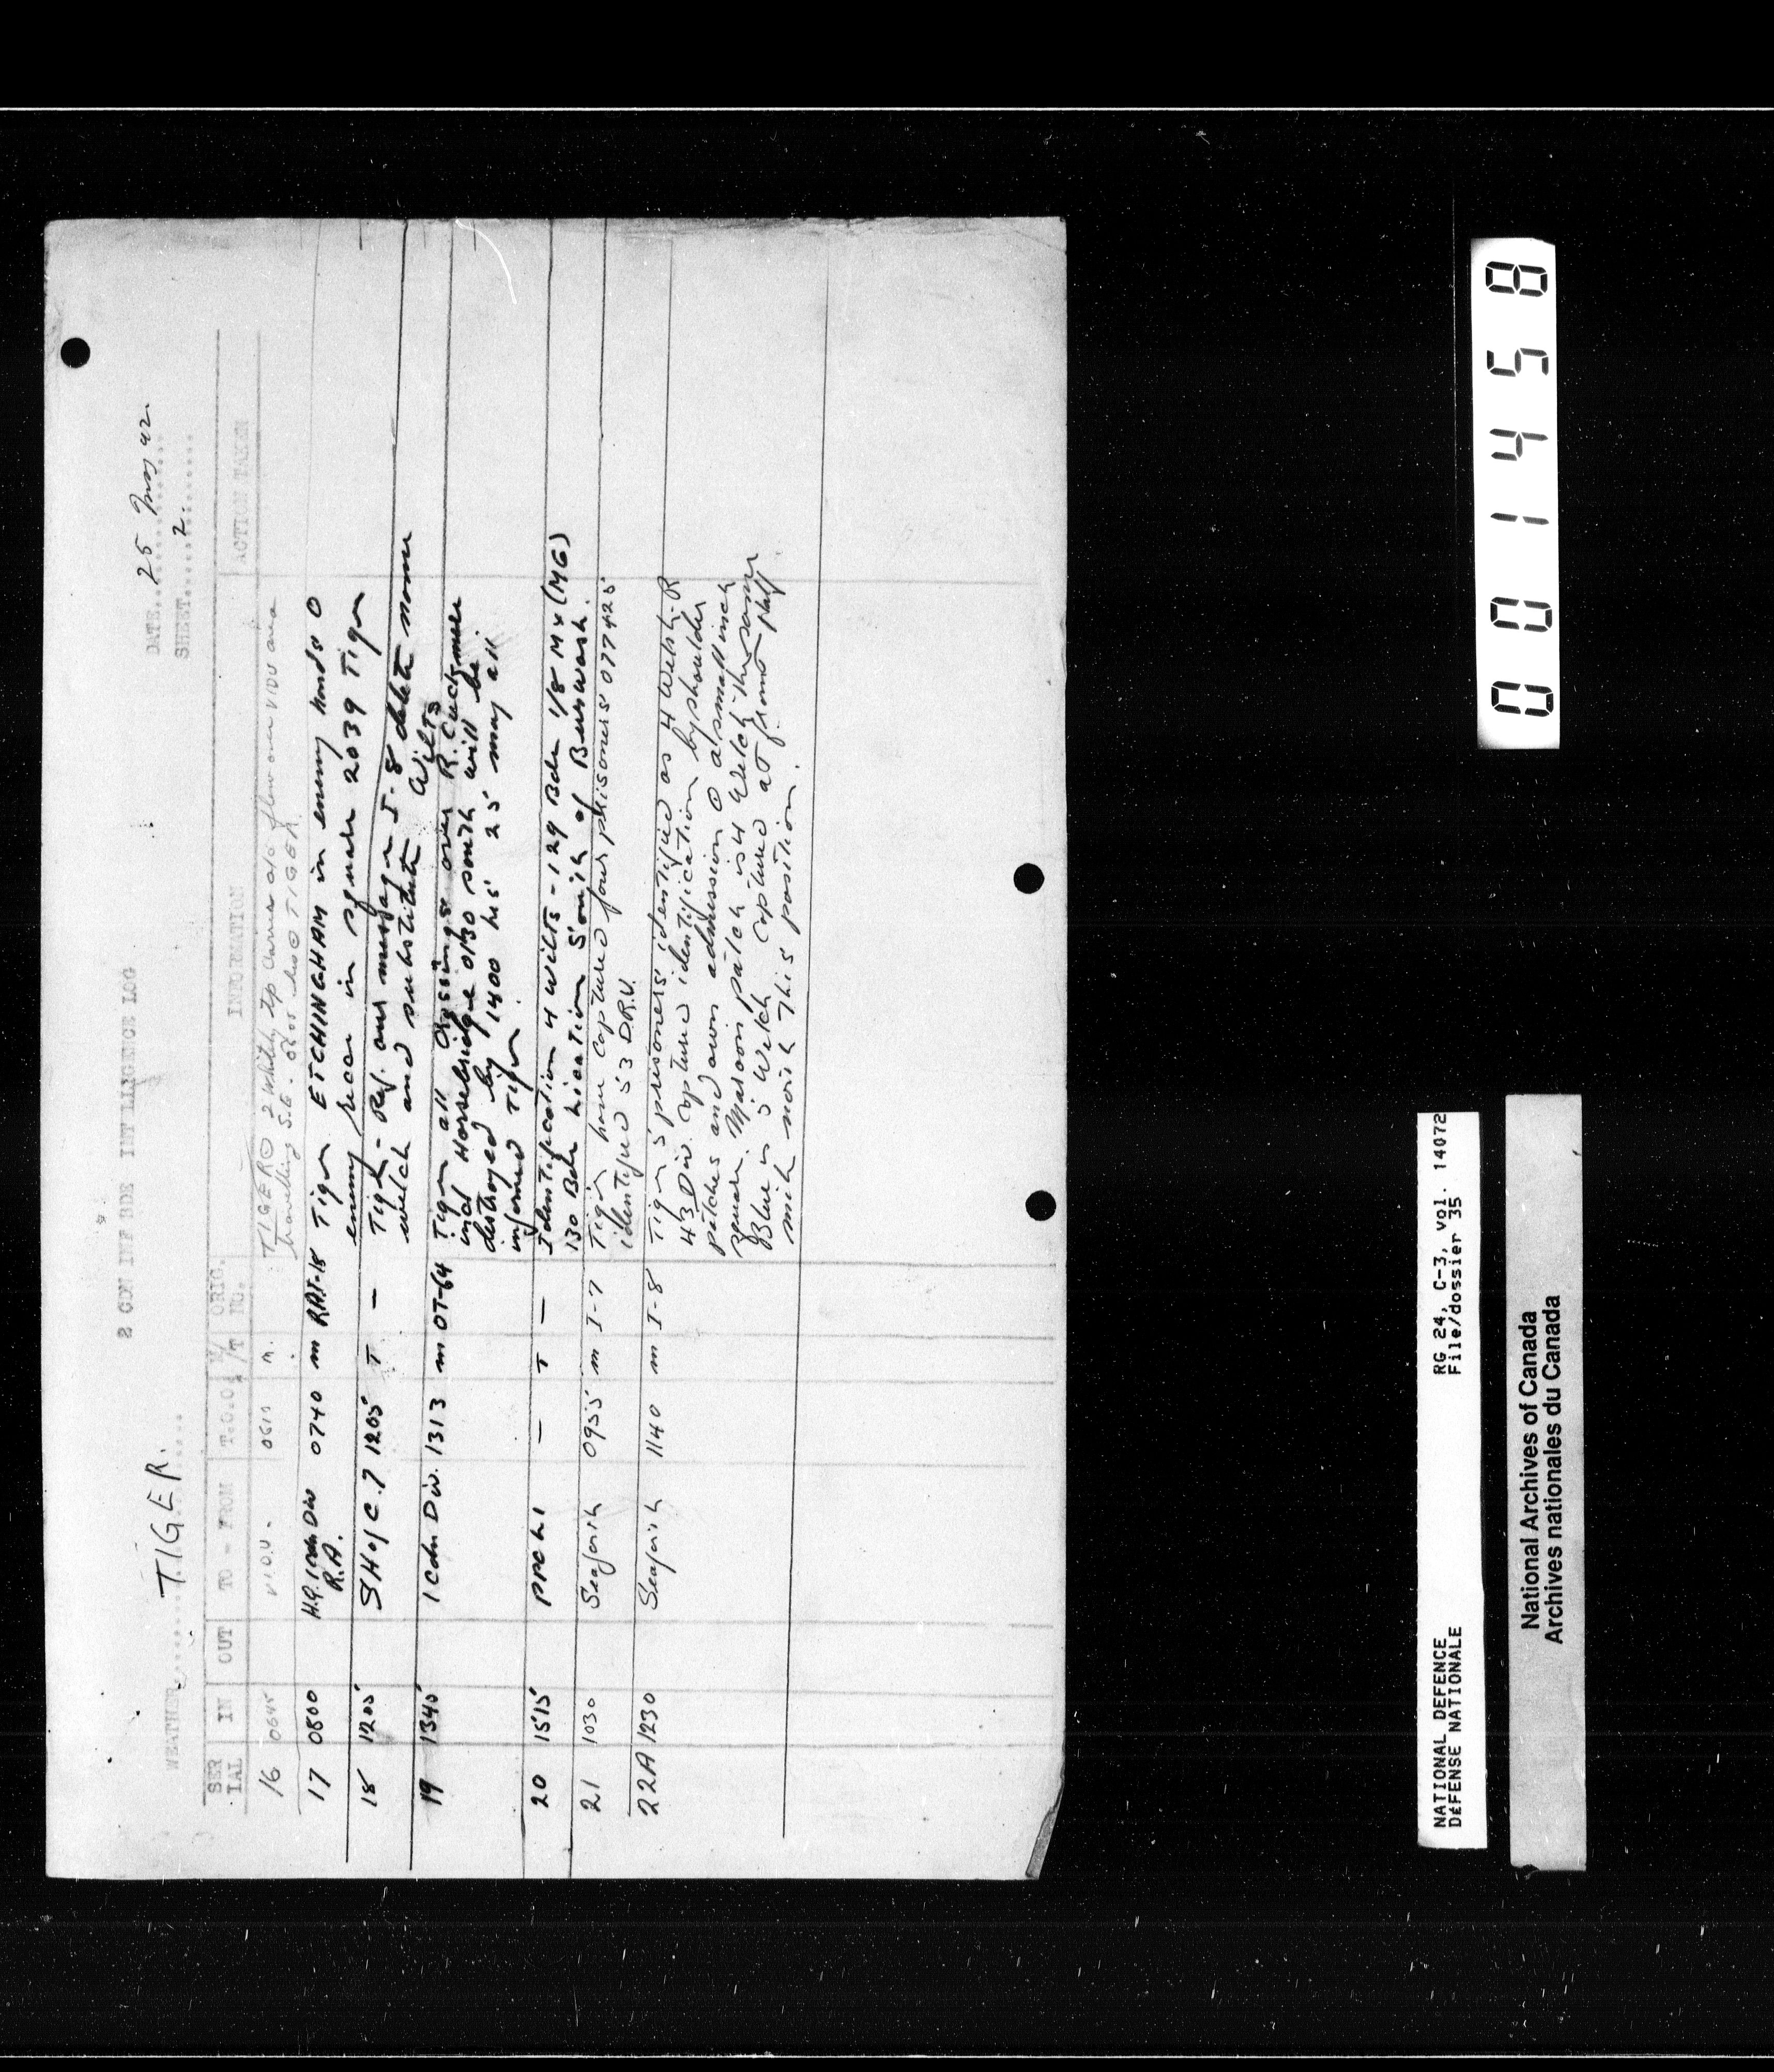 2 CDN INF BDE INTELLIGENCE LOG
DATE...25 May 42.
WEATHER.......... TIGER. SHEET...2.
SER IAL IN OUT TO - FROM T.O.O. W/ /T ORIG. NO. INFORMATION ACTION TAKEN
16 0645 V.I.D.U. m. TIGER flew over VIDU area
travelling S.E. TIGER
17 0800 H.Q. 1 Cdn Div 0740 m RA1-18 Tiger ETCHINGHAM in enemy hands O
R.A. enemy recce in square 2039 Tiger
18 1205 SH of C.7 1205 T — Tiger - Ref. our message I-8 delete
welch and substitute Wilts
19 1345 1 Cdn Div. 1313 m OT-64 Tiger all crossings over R. Cuckmere
incl Horsebridge 0130 south will be
destroyed by 1400 hrs 25 may all
informed Tiger.
20 1515 PPCLI — T — Identification 4 Wilts - 129 Bde 1/8 Mx (MG)
130 Bde Location South of Burswash.
21 1030 Seaforth 0955 m I-7 Tiger have captured four prisoners 077425
identified 53 D.R.U.
22A 1230 Seaforth 1140 m I-8 Tiger 5 prisoners identified as 4 Welsh R
43 Div. captured identification by shoulder
patches and own admission O a small inch
square. Maroon patch is 4 Welch the same
Blue is 5 Welch captured at from
mile north this position.
001458
NATIONAL DEFENCE RG 24, C-3, vol. 14072
DÉFENSE NATIONALE File/dossier 35
National Archives of Canada
Archives nationales du Canada